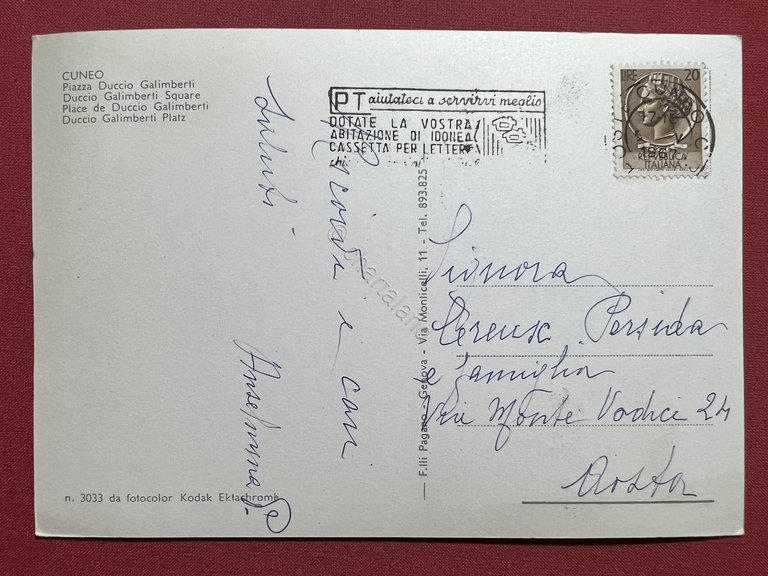 CUNEO
Piazza Duccio Galimberti
Duccio Galimberti Square
Place de Duccio Galimberti
Duccio Galimberti Platz
PT aiutateci a servirvi meglio
DOTATE LA VOSTRA
ABITAZIONE DI IDONEA
CASSETTA PER LETTERE
LIRE 20
REPUBBLICA
ITALIANA
CUNEO
1967
Ricevete i cari
Saluti
F.lli Pagano - Genova - Via Monticelli, 11 - Tel. 893.825
Signora
Persida
e famiglia
Via Monte Vodice 24
Aosta
n. 3033 da fotocolor Kodak Ektachrome